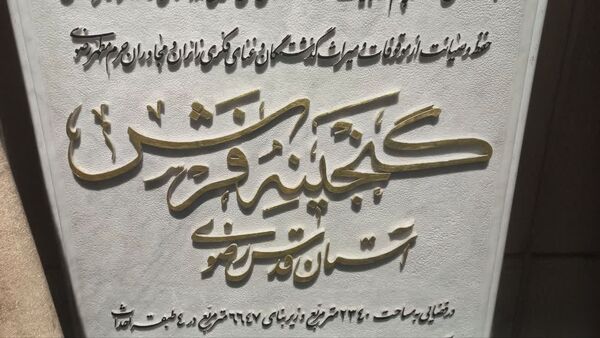 حفظ و صیانت از موقوفات و میراث گذشتگان و غنای فکری زائران و مجاوران حرم مطهر رضوی
گنجینه فرش
آستان قدس رضوی
در فضایی به مساحت ۲۳۴۰ متر مربع و زیربنای ۶۶۴۷ متر مربع در ۴ طبقه احداث